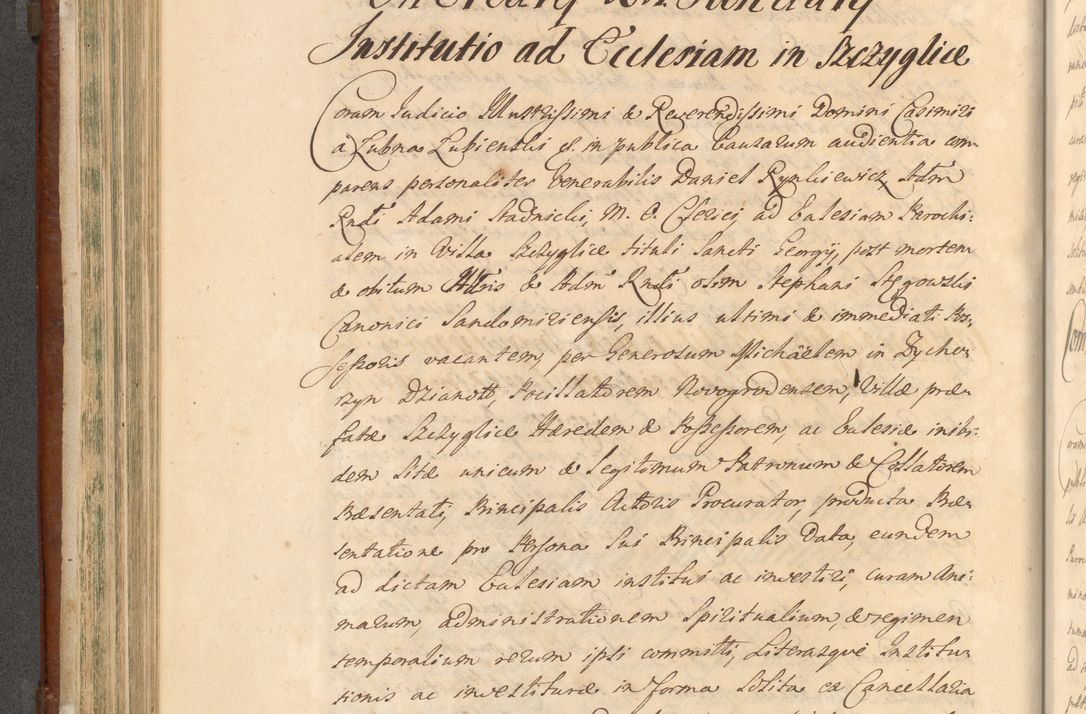 Institutio ad Ecclesiam in Szczyglice
Coram Judicio Illustrissimi & Reverendissimi Domini Casimiri
a Łubna Łubienski &. in publica Causarum audientia com-
parens personaliter Venerabilis Daniel Rynkiewicz Adm
Rndi Adami Stadnicki, M. C. ad Eclesiam Parochi:
alem in Villa Szczyglice tituli Sancti Georgij, post mortem
& obitum & Adm Rndi olim Stephani Stęgowski
Canonici Sandomiriensis, illius ultimi & immediati Pos-
sessoris vacantem, per Generosum Michäelem in Zycho-
rzyn Dzianott, Pocillatorem Novogrodensem, Villæ præ-
fatæ Szczyglice Hæredem & Possessorem, ac Eclesiæ inibi-
dem Sitæ unicum & legitimum Patronum & Collatorem
Præsentati, Principalis Actoris Procurator, producta Præ-
sentatione pro Persona Sui Principalis Data, eundem
ad dictam Eclesiam institui ac investiri, curam Ani:
marum, administrationem Spiritualium, & regimen
temporalium rerum ipsi committi, Literasque Institu-
tionis ac investituræ in forma Solita ex Cancellaria